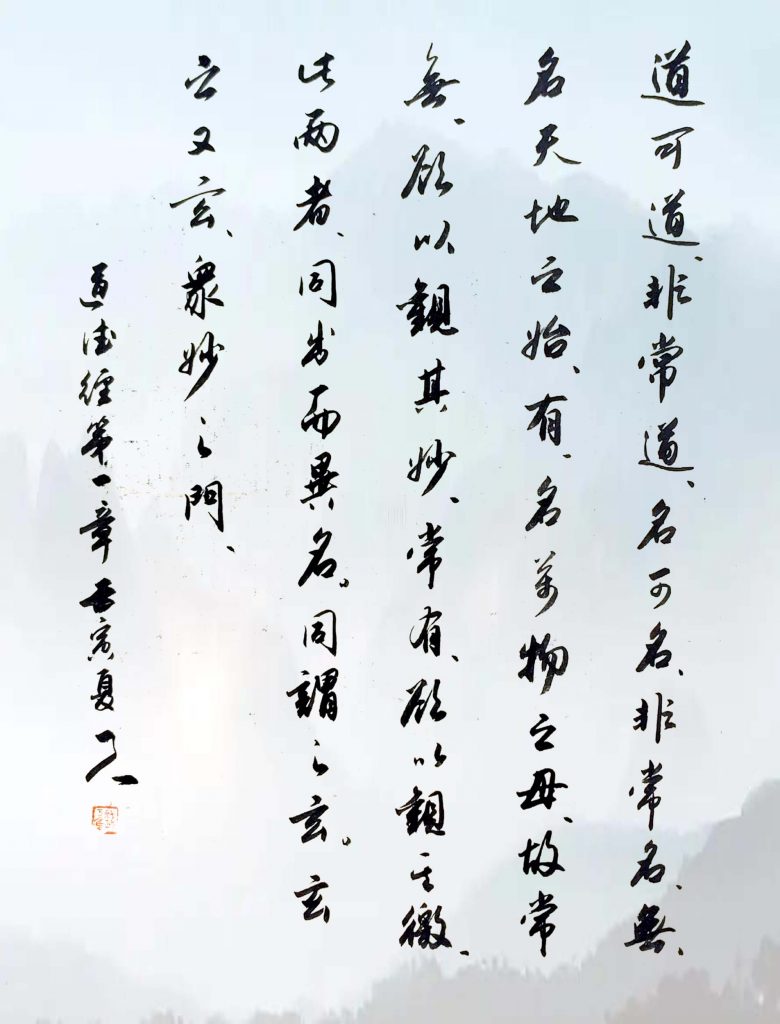 道可道、非常道、名可名、非常名、無、
名天地之始、有、名萬物之母、故常
無、欲以觀其妙、常有、欲以觀其徼、
此兩者、同出而異名。同謂之玄。玄
之又玄、眾妙之門、
道德經第一章壬寅夏